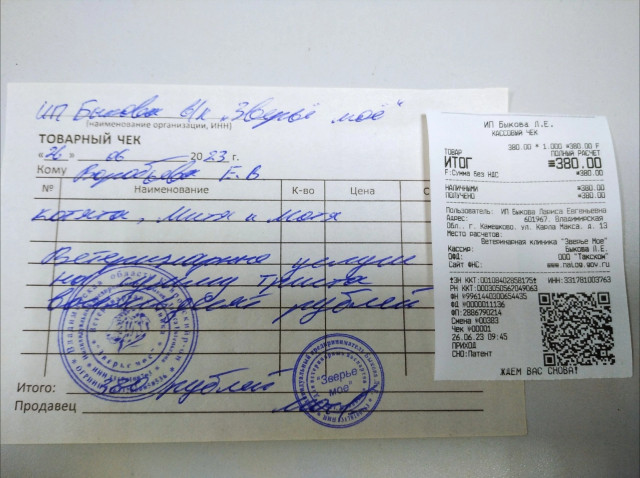 ИП Быкова в/к "Зверьё моё"
(наименование организации, ИНН)
ТОВАРНЫЙ ЧЕК
«26» 06 2023 г.
Кому Воробьева Е.В
№ Наименование К-во Цена С
котята, Митя и Мотя
Ветеринарные услуги
на сумму триста
восемьдесят рублей
Итого: 380 рублей
Продавец
"Зверье
мое"
ИП Быкова Л.Е.
КАССОВЫЙ ЧЕК
ТОВАР 380.00 * 1.000 =380.00 F
ПОЛНЫЙ РАСЧЕТ
ИТОГ =380.00
F:Сумма без НДС =380.00
НАЛИЧНЫМИ =380.00
ПОЛУЧЕНО =380.00
Пользователь: ИП Быкова Лариса Евгеньевна
Адрес: 601967, Владимирская
Обл., г. Камешково, ул. Карла Маркса, д. 13
Место расчетов:
Ветеринарная клиника "Зверье Мое"
Кассир: Быкова Л.Е.
ОФД: ООО "Такском"
Сайт ФНС: www.nalog.gov.ru
ЗН ККТ:00108402858175 ИНН:331781003763
РН ККТ:0003050567049063
ФН №9961440300654435
ФД №0000011136
ФП: 2886790214
Смена №00383
Чек №00001
26.06.23 09:45
ПРИХОД
СНО:Патент
ЖДЕМ ВАС СНОВА!